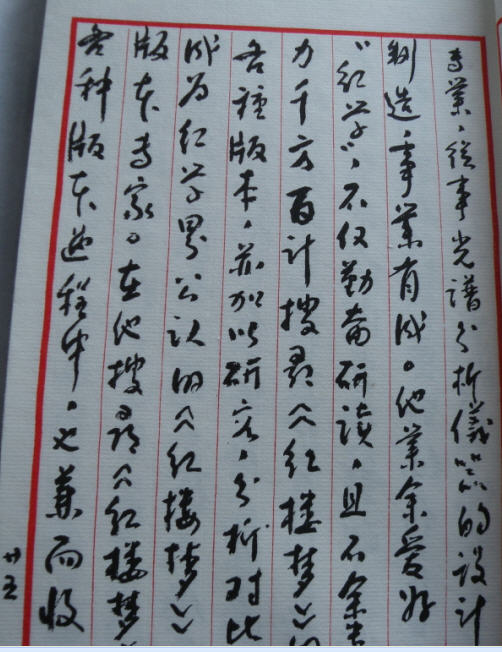 专業，從事光谱分析儀器的设计
制造，事業有成。他業余爱好
“红学”，不仅勤奋研读，且不余
力千方百计搜寻《红楼梦》
各種版本，并加以研究，分析对比
成为红学界公认的《红楼梦》
版本专家。在他搜寻《红楼梦
各种版本过程中，也兼而收
廿五